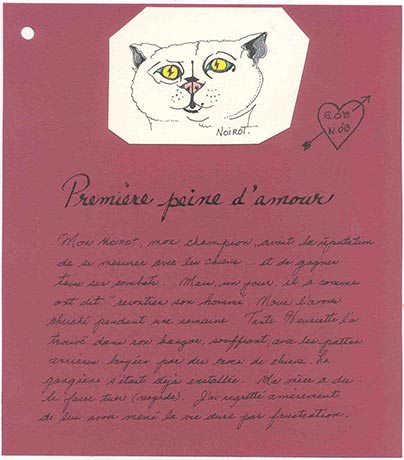 NOIROT.
G. O'B
N. O'B
Première peine d'amour
Mon NOIROT, mon champion, avait la réputation
de se mesurer avec les chiens... et de gagner
tous ses combats. Mais, un jour, il a comme
ont dit "rencontrer son homme". Nous l'avons
cherché pendant une semaine. Tante Henriette l'a
trouvé dans son hangar, souffrant, avec les pattes
arrières broyées par du crocs de chiens. La
gangrène s'était déjà installée. Ma mère a du
le faire tuer (noyade). J'ai regretté amèrement
de lui avoir mené la vie dure par frustration.